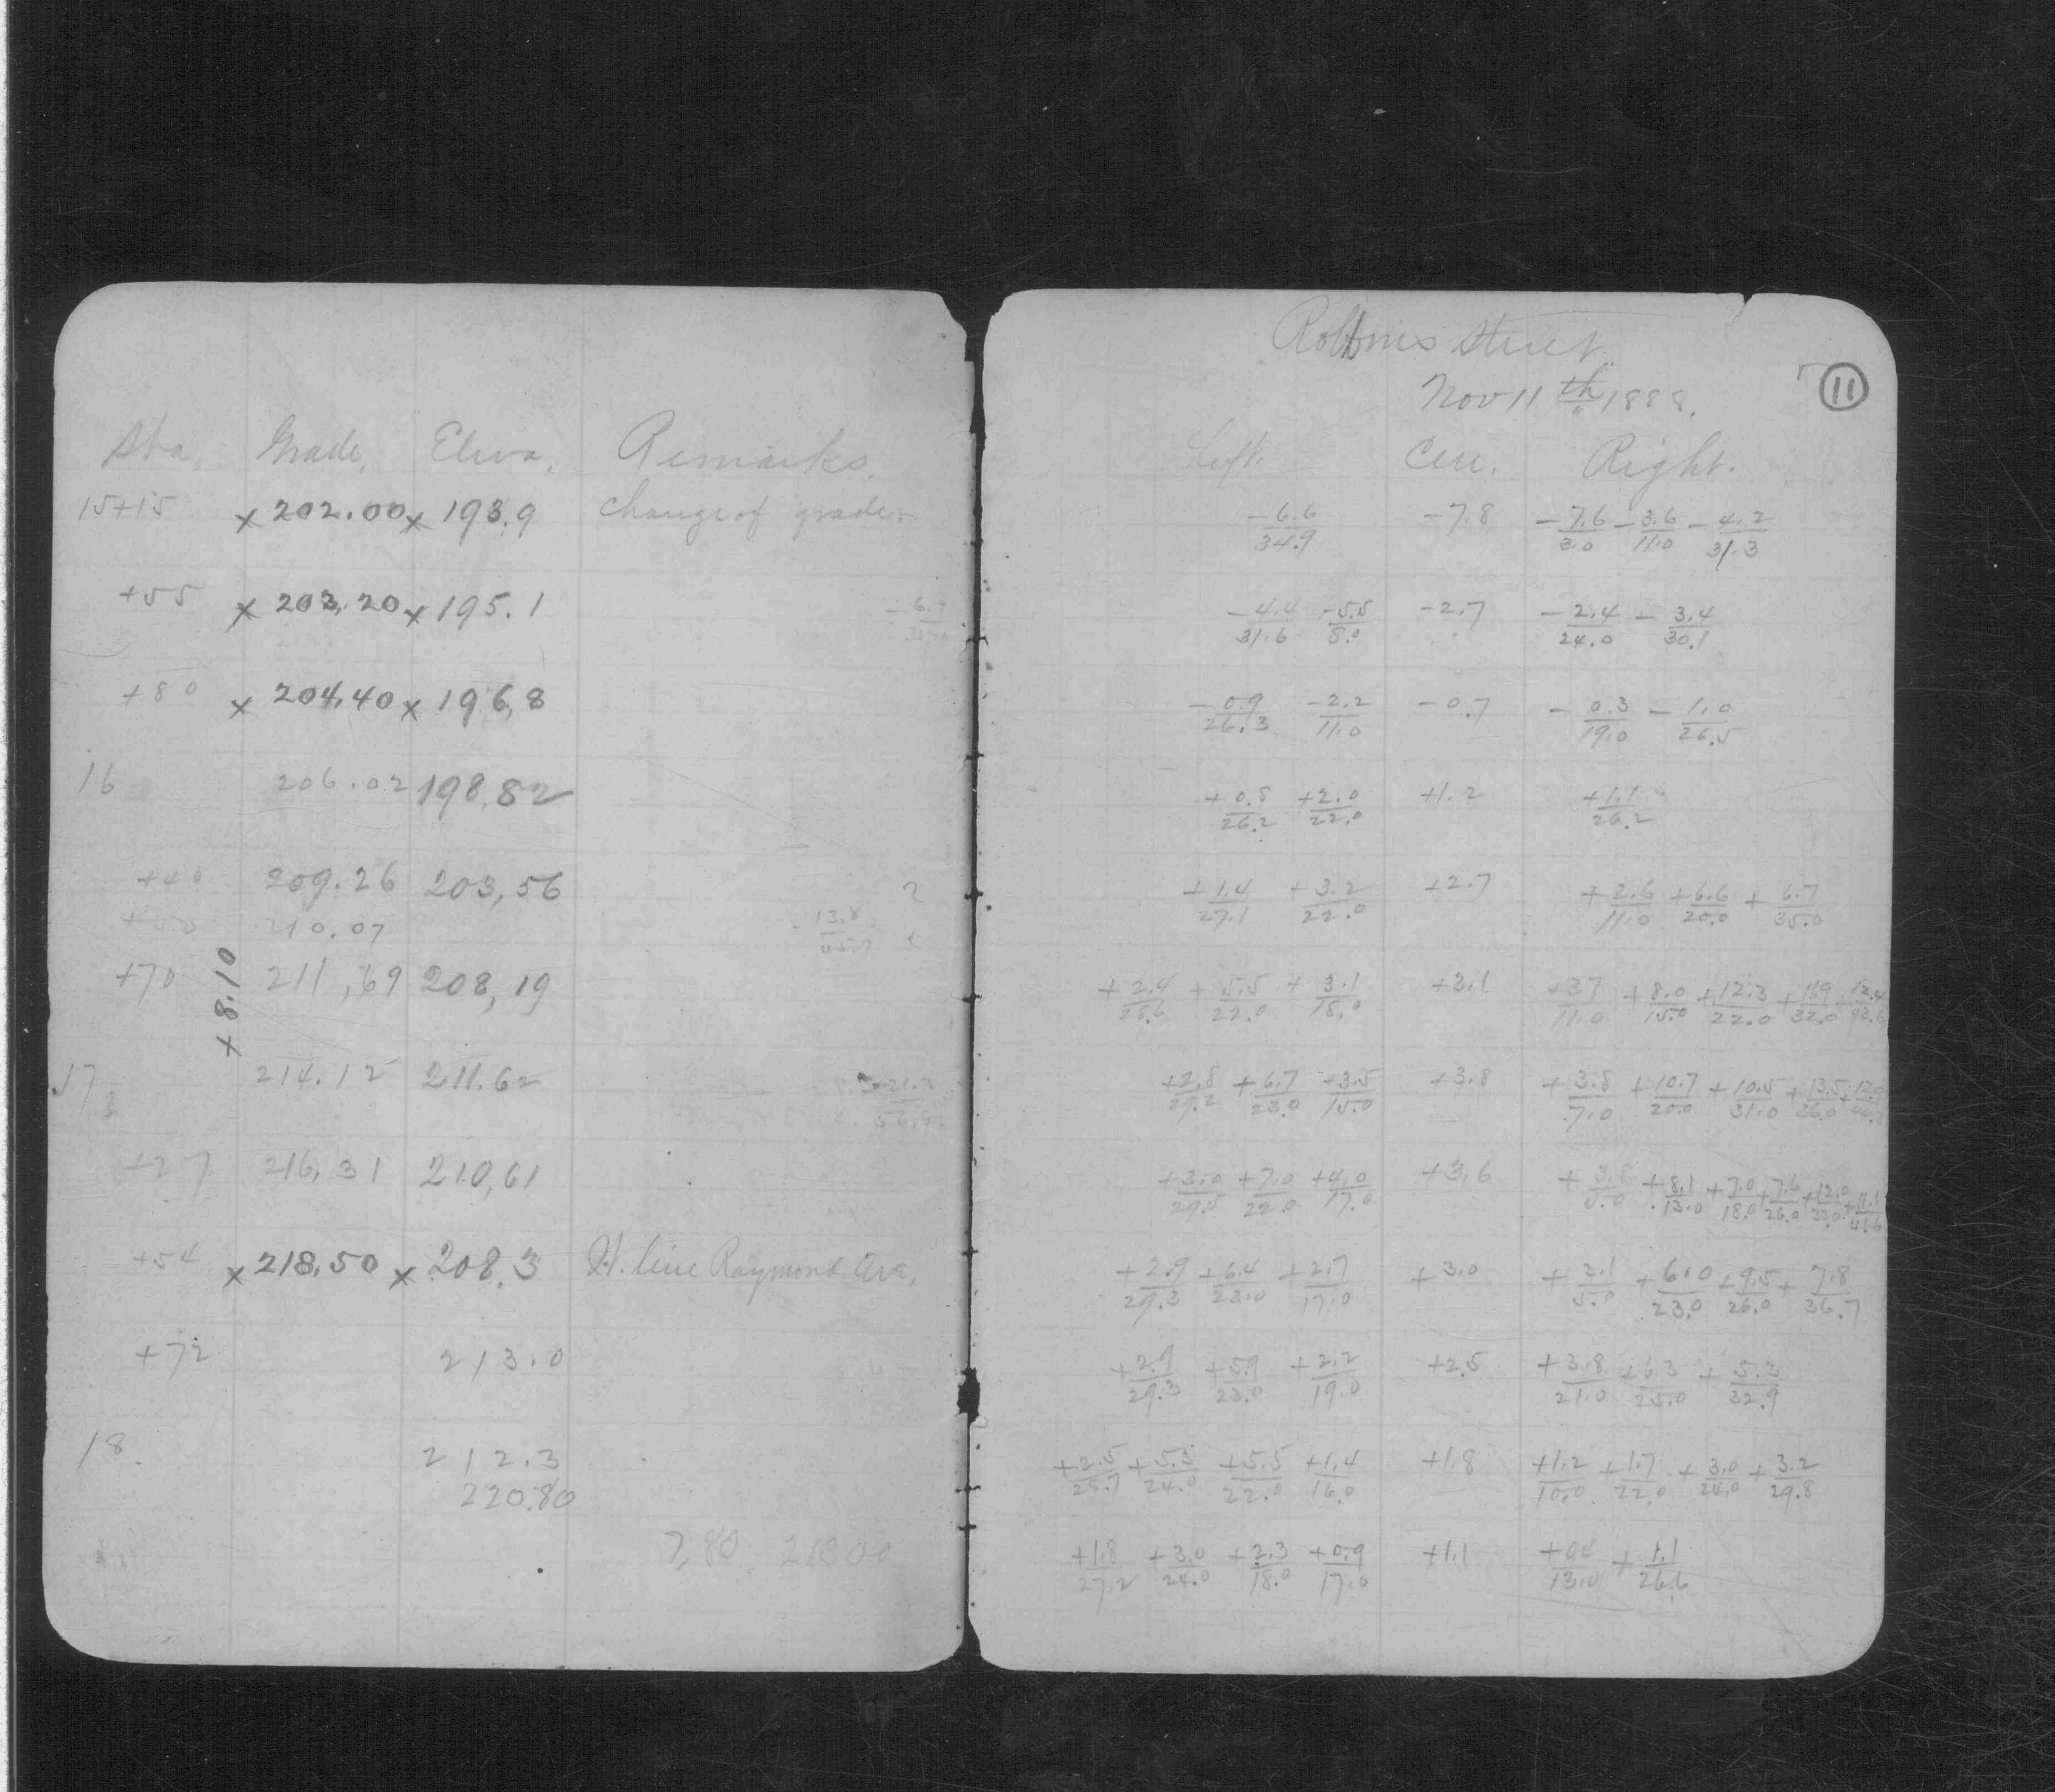 Sta. Grade. Eleva. Remarks.
15+15 x 202.00 x 193.9 Change of grade
+55 x 203.20 x 195.1
+80 x 204.40 x 196.8
16 206.02 198.82
+40 209.26 203,56
+50 210.07
13.8
+70 211,69 208,19
+8.10
17 214.12 211.62
+27 216,31 210,61
+54 x 218.50 x 208.3 W. line Raymond Ave.
+72 213.0
18. 212.3
220.80
7,80 218 00
Robbins Street
Nov 11th 1888.
11
Left. Cen. Right.
-6.6/34.9 -7.8 -7.6/3.0 -3.6/11.0 -4.2/31.3
-4.4/31.6 -5.5/8.0 -2.7 -2.4/24.0 -3.4/30.1
-0.9/26.3 -2.2/11.0 -0.7 -0.3/19.0 -1.0/26.5
+0.8/26.2 +2.0/22.0 +1.2 +1.1/26.2
+1.4/27.1 +3.2/22.0 +2.7 +2.6/11.0 +6.6/20.0 +6.7/35.0
+2.4/28.6 +5.5/22.0 +3.1/18.0 +3.1 +3.7/11.0 +8.0/15.0 +12.3/22.0 +11.9/32.0
+2.8/29.2 +6.7/23.0 +3.5/15.0 +3.8 +3.8/7.0 +10.7/20.0 +10.5/31.0 +13.5/36.0
+3.0/29.5 +7.0/22.0 +4.0/17.0 +3.6 +3.8/5.0 +8.1/13.0 +7.0/18.0 +7.6/26.0 +12.0/33.0 +11.1/41.6
+2.9/29.3 +6.4/23.0 +2.7/17.0 +3.0 +3.1/5.0 +6.0/23.0 +9.5/26.0 +7.8/36.7
+2.9/29.3 +5.9/23.0 +2.2/19.0 +2.5 +3.8/21.0 +6.3/25.0 +5.3/32.9
+2.5/28.7 +5.5/24.0 +5.5/22.0 +1.4/16.0 +1.8 +1.2/10.0 +1.7/22.0 +3.0/24.0 +3.2/29.8
+1.8/27.2 +3.0/24.0 +2.3/18.0 +0.9/17.0 +1.1 +0.4/13.0 +1.1/26.6